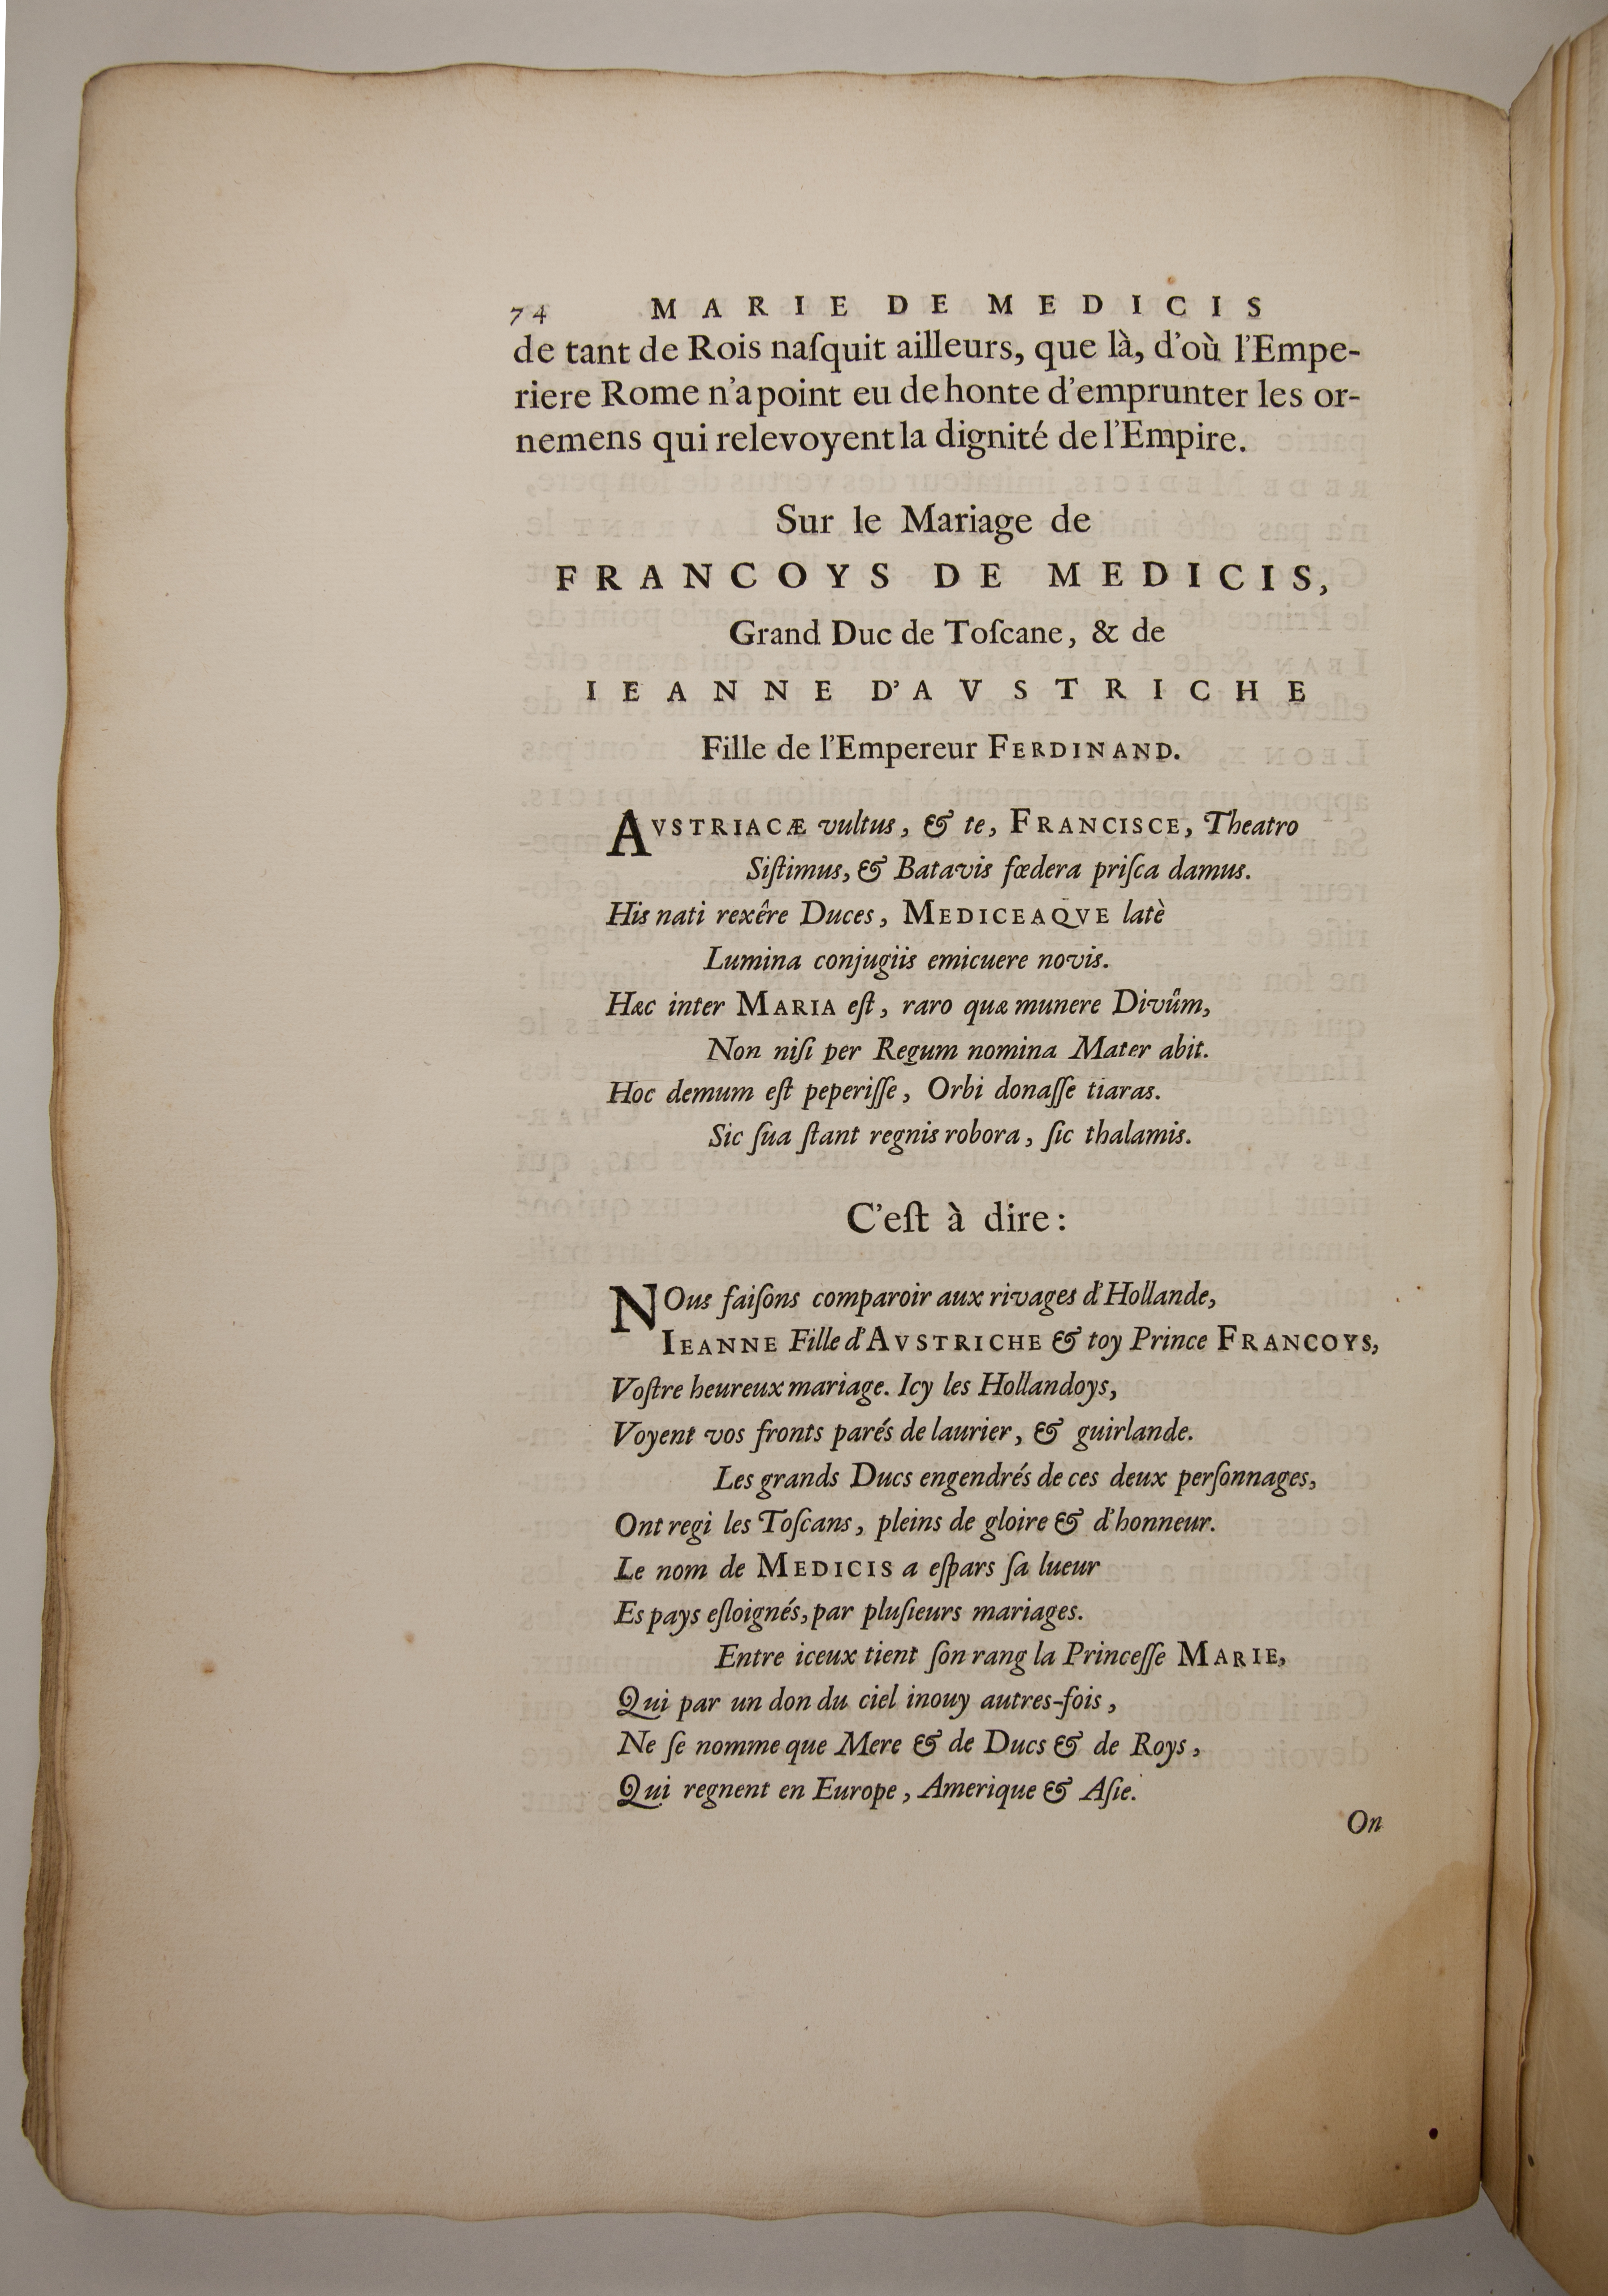 74 MARIE DE MEDICIS
de tant de Rois naſquit ailleurs, que là, d'où l'Empe-
riere Rome n'a point eu de honte d'emprunter les or-
nemens qui relevoyent la dignité de l'Empire.
Sur le Mariage de
FRANCOYS DE MEDICIS,
Grand Duc de Toſcane, & de
IEANNE D'AVSTRICHE
Fille de l'Empereur FERDINAND.
AVSTRIACÆ vultus, & te, FRANCISCE, Theatro
Siſtimus, & Batavis fœdera priſca damus.
His nati rexêre Duces, MEDICEAQVE latè
Lumina conjugiis emicuere novis.
Hæc inter MARIA eſt, raro quæ munere Divûm,
Non niſi per Regum nomina Mater abit.
Hoc demum eſt peperiſſe, Orbi donaſſe tiaras.
Sic ſua ſtant regnis robora, ſic thalamis.
C'eſt à dire:
NOus faiſons comparoir aux rivages d'Hollande,
IEANNE Fille d'AVSTRICHE & toy Prince FRANCOYS,
Voſtre heureux mariage. Icy les Hollandoys,
Voyent vos fronts parés de laurier, & guirlande.
Les grands Ducs engendrés de ces deux perſonnages,
Ont regi les Toſcans, pleins de gloire & d'honneur.
Le nom de MEDICIS a eſpars ſa lueur
Es pays eſloignés, par pluſieurs mariages.
Entre iceux tient ſon rang la Princeſſe MARIE,
Qui par un don du ciel inouy autres-fois,
Ne ſe nomme que Mere & de Ducs & de Roys,
Qui regnent en Europe, Amerique & Aſie.
On